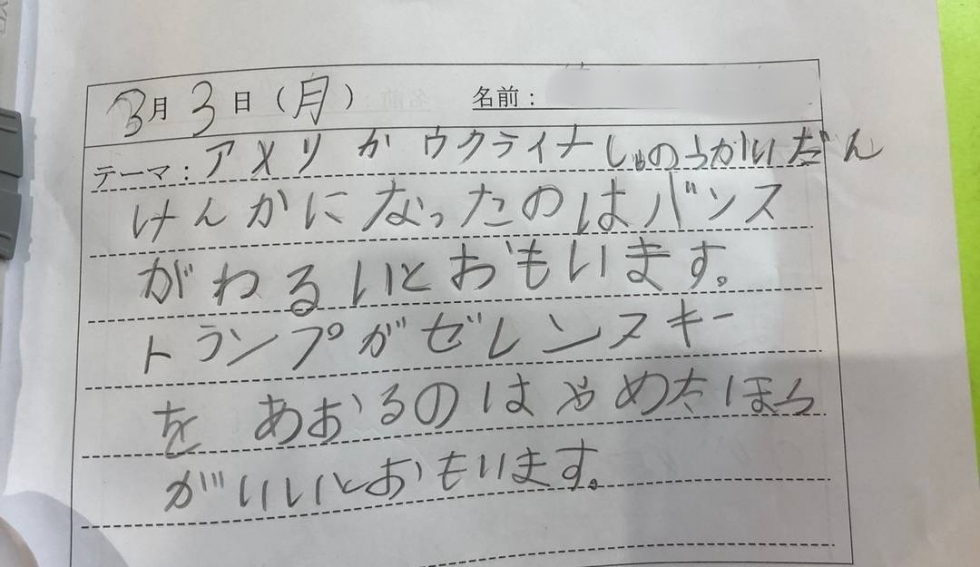 3月3日(月) 名前:
テーマ:アメリかウクライナしゅのうかいだん
けんかになったのはバンス
がわるいとおもいます。
トランプがゼレンスキー
をあおるのはやめたほう
がいいとおもいます。